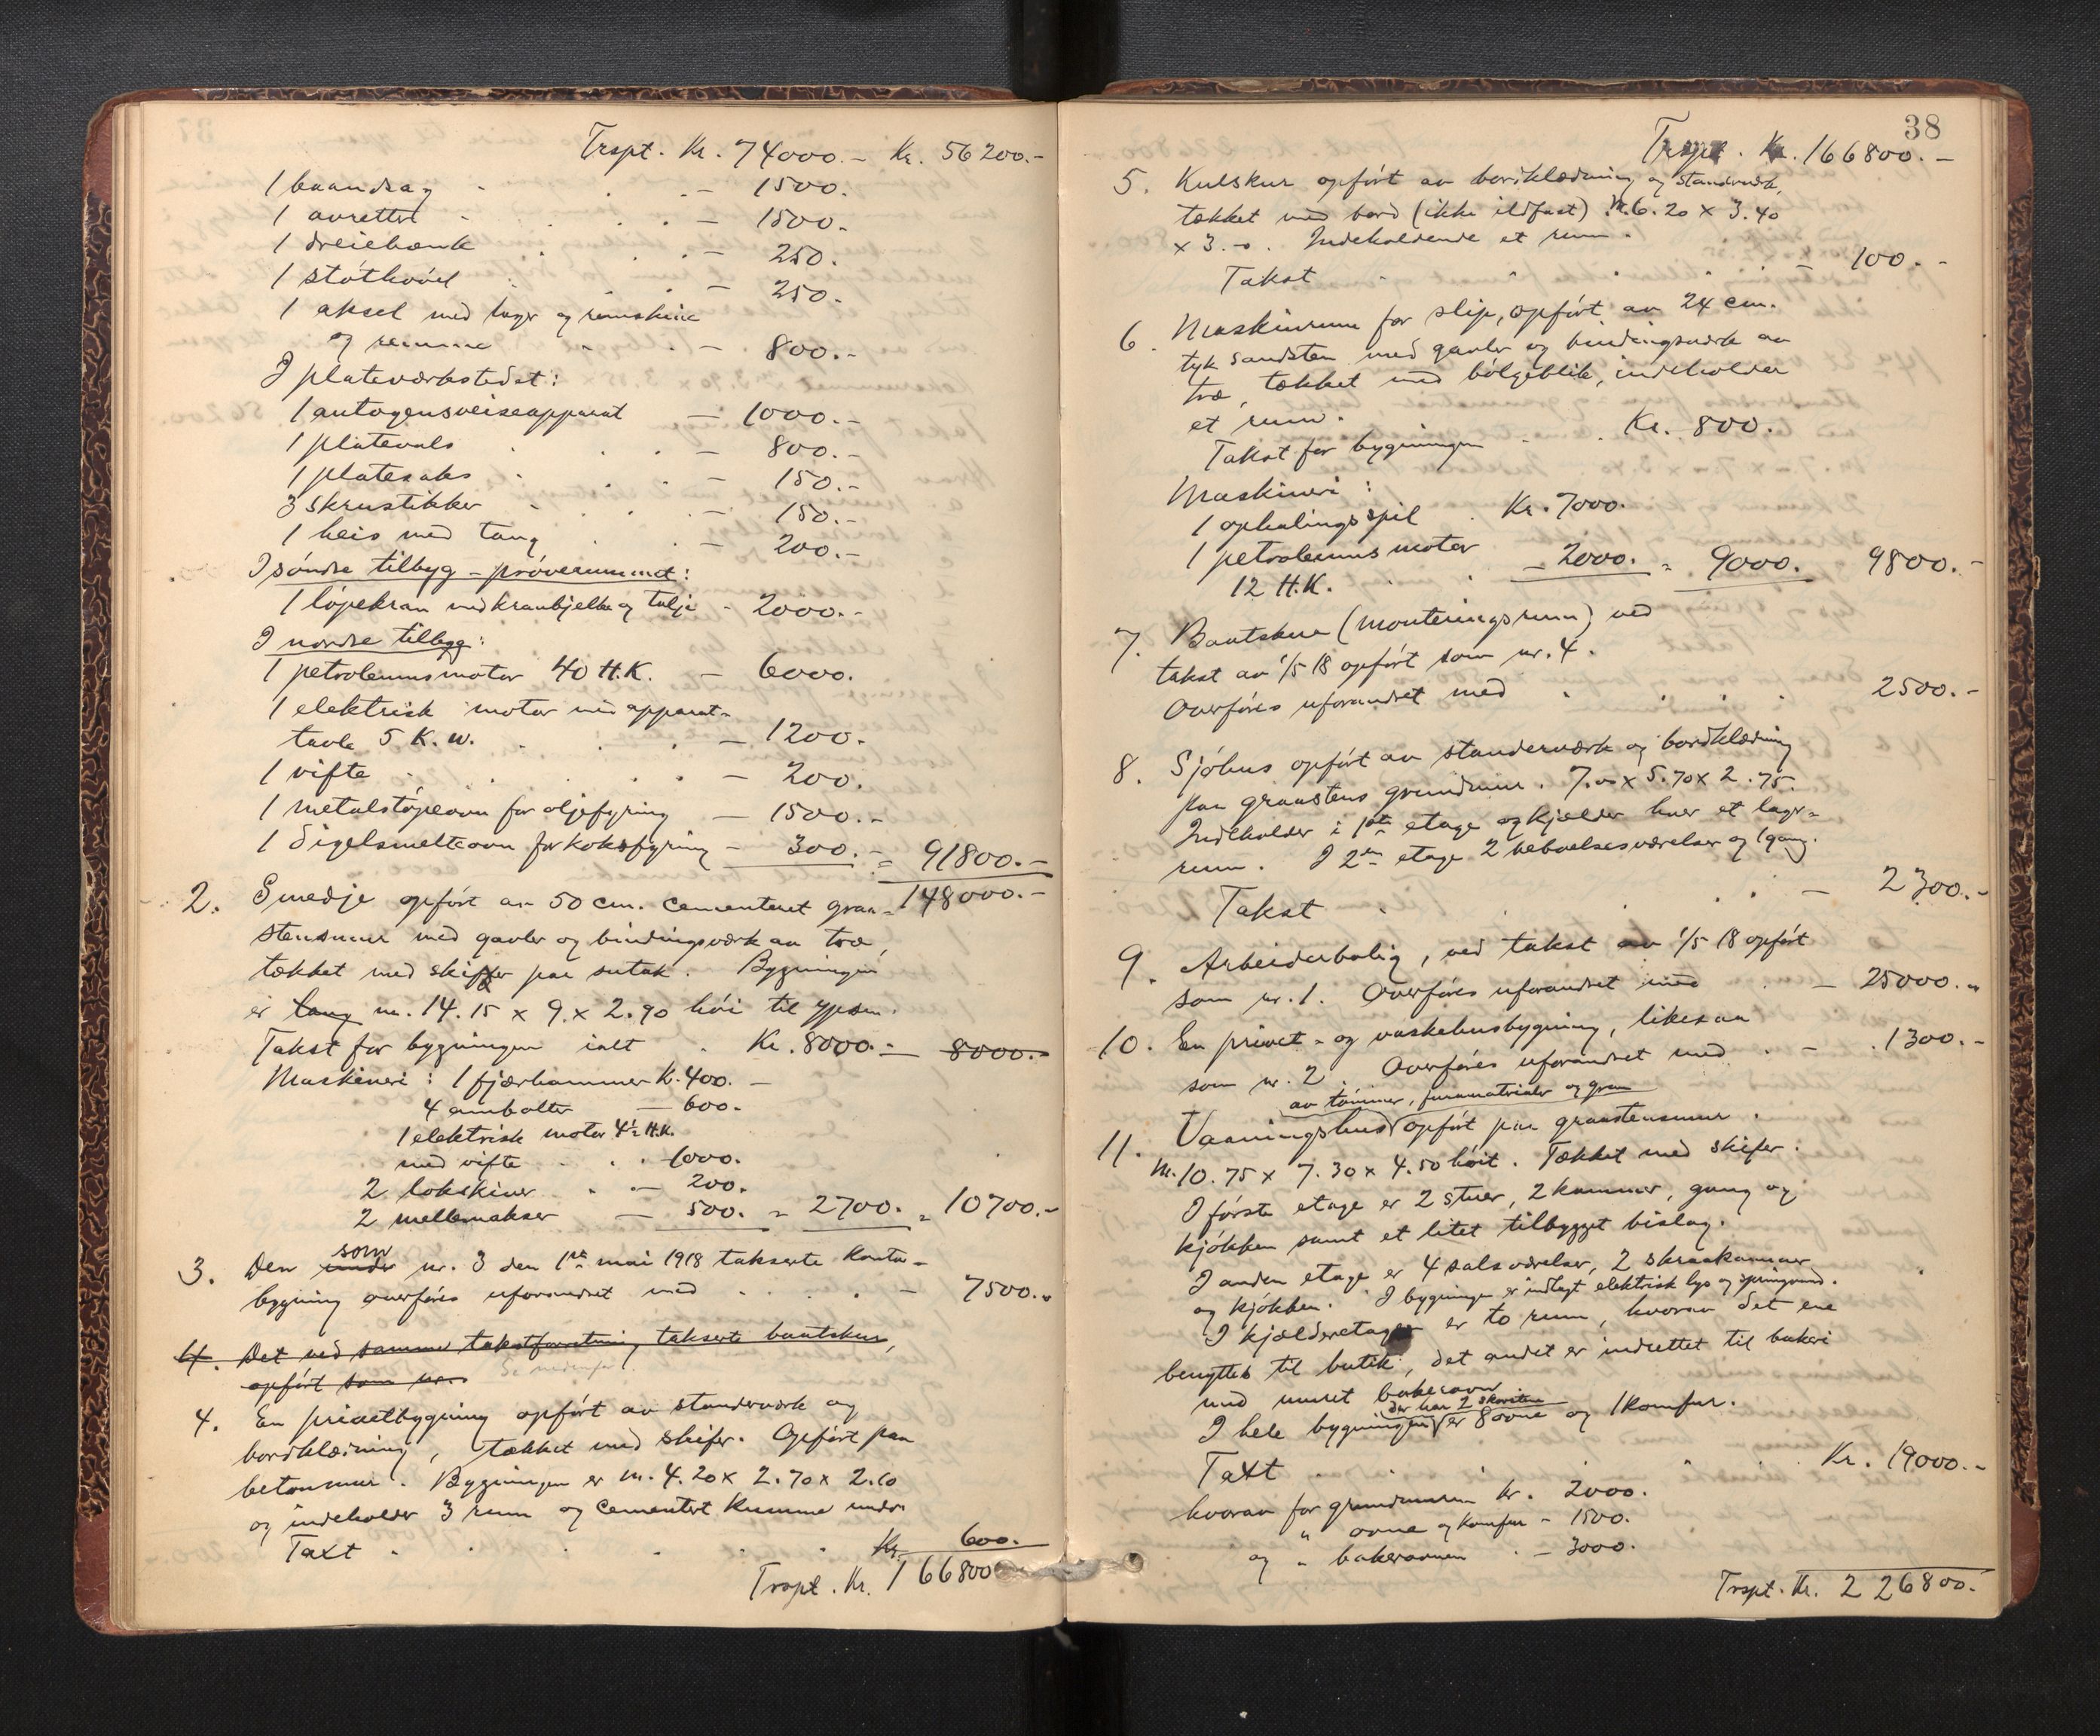 Trspt. Kr. 74000.- Kr. 56200.-
1 baandsag - 1500.
1 avretter - 1500.
1 dreiebænk - 250.
1 støthøvel - 250.
1 aksel med lager og remskive
og remme - 800.-
I plateværkstedet:
1 autogensveiseapparat - 1000.-
1 platevals - 800.-
1 platesaks - 150.-
3 skrustikker - 150.-
1 heis med tang - 200.-
I søndre tilbyg - prøverummet:
1 løpekran med kranbjelke og talje - 2000.-
I nordre tilbygg:
1 petroleumsmotor 40 H.K. - 6000.
1 elektrisk motor med apparat-
tavle 5 K.W. - 1200.
1 vifte - 200.
1 metalstøpeovn for oljefyring - 1500.-
1 Digelsmelteovn for koksfyring - 300.- = 91800.-
148000.-
2. Smedje opført av 50 cm. cementeret graa-
stensmur med gavler og bindingsværk av træ,
tækket med skiffer paa sutak. Bygningen
er lang m. 14.15 x 9. x 2.90 høi til gesims.
Takst for bygningen ialt Kr. 8000.- - 8000.-
Maskineri: 1 fjærhammer K. 400. -
4 ambolter - 600.
1 elektrisk motor 4½ H.K.
med vifte - 1000.
2 lokskiver - 200.
2 mellemakser - 500. = 2700. = 10700.-
3. Den under som nr. 3 den 1ste mai 1918 takserte kontor-
bygning overføres uforandret med - 7500.-
4. Det ved samme takstforretning takserte baatskur,
opført som nr.
Se nedenfor.
4. En privetbygning opført av standerværk og
bordklædning, tækket med skifer. Opført paa
betonmur. Bygningen er m. 4.20 x 2.70 x 2.10
og indeholder 3 rum og cementert kumme under
Taxt Kr. 600.
Trspt. Kr. 166800
38
Trspt. Kr. 166800.-
5. Kulskur opført av bordklædning og standværk,
tækket med bord (ikke ildfast). M. 6.20 x 3.40
x 3.-. Indeholdende et rum.
Takst - 100.-
6. Maskinrum for slip, opført av 24 cm.
tyk sandsten med gavler og bindingsværk av
træ, tækket med bølgeblik, indeholder
et rum.
Takst for bygningen Kr. 800.
Maskineri:
1 ophalingsspil Kr. 7000.
1 petroleums motor
12 H.K. - 2000. = 9000. 9800.-
7. Baatskur (monteringsrum) ved
takst av 1/5 18 opført som nr. 4.
Overføres uforandret med 2500.-
8. Sjøhus opført av standerværk og bordklædning
paa graastens grundmur. 7.00 x 5.70 x 2.75.
Indeholder i 1ste etage og kjælder hver et lager-
rum. I 2den etage 2 beboelsesværelser og 1 gang.
Takst - 2300.-
9. Arbeiderbolig, ved takst av 1/5 18 opført
som nr. 1. Overføres uforandret med - 25000.-
10. En privet- og vaskehusbygning, likesaa
som nr. 2. Overføres uforandret med - 1300.-
av tømmer, furumaterialer og gran
11. Vaaningshus opført paa graastensmur.
M. 10.75 x 7.30 x 4.50 høit. Tækket med skifer.
I første etage er 2 stuer, 2 kammer, gang og
kjøkken samt et litet tilbygget bislag.
I anden etage er 4 salsværelser, 2 skraakammer
og kjøkken. I bygningen er indlagt elektrisk lys og springvand.
I kjælderetagen er to rum, hvorav det ene
benyttes til butik, det andet er indrettet til bakeri
med muret bakerovn
der har 2 skorstene
I hele bygningen er 8 ovne og 1 komfur.
Taxt Kr. 19000.-
hvorav for grundmuren Kr. 2000.
" ovne og komfur - 1500.
og " bakerovnen - 3000.
Trspt. Kr. 226800.-